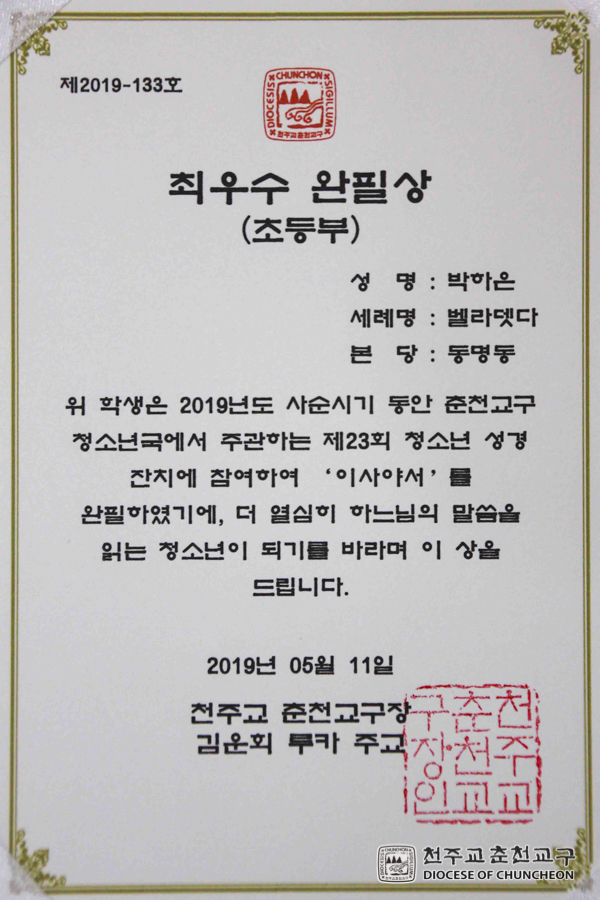 제2019-133호
DIOCESIS CHUNCHON SIGILLUM
천주교춘천교구
최우수 완필상
(초등부)
성 명 : 박하은
세례명 : 벨라뎃다
본 당 : 동명동
위 학생은 2019년도 사순시기 동안 춘천교구
청소년국에서 주관하는 제23회 청소년 성경
잔치에 참여하여 ‘이사야서’를
완필하였기에, 더 열심히 하느님의 말씀을
읽는 청소년이 되기를 바라며 이 상을
드립니다.
2019년 05월 11일
천주교 춘천교구장
김운회 루카 주교
천주교
춘천교
구장인
천주교춘천교구
DIOCESE OF CHUNCHEON